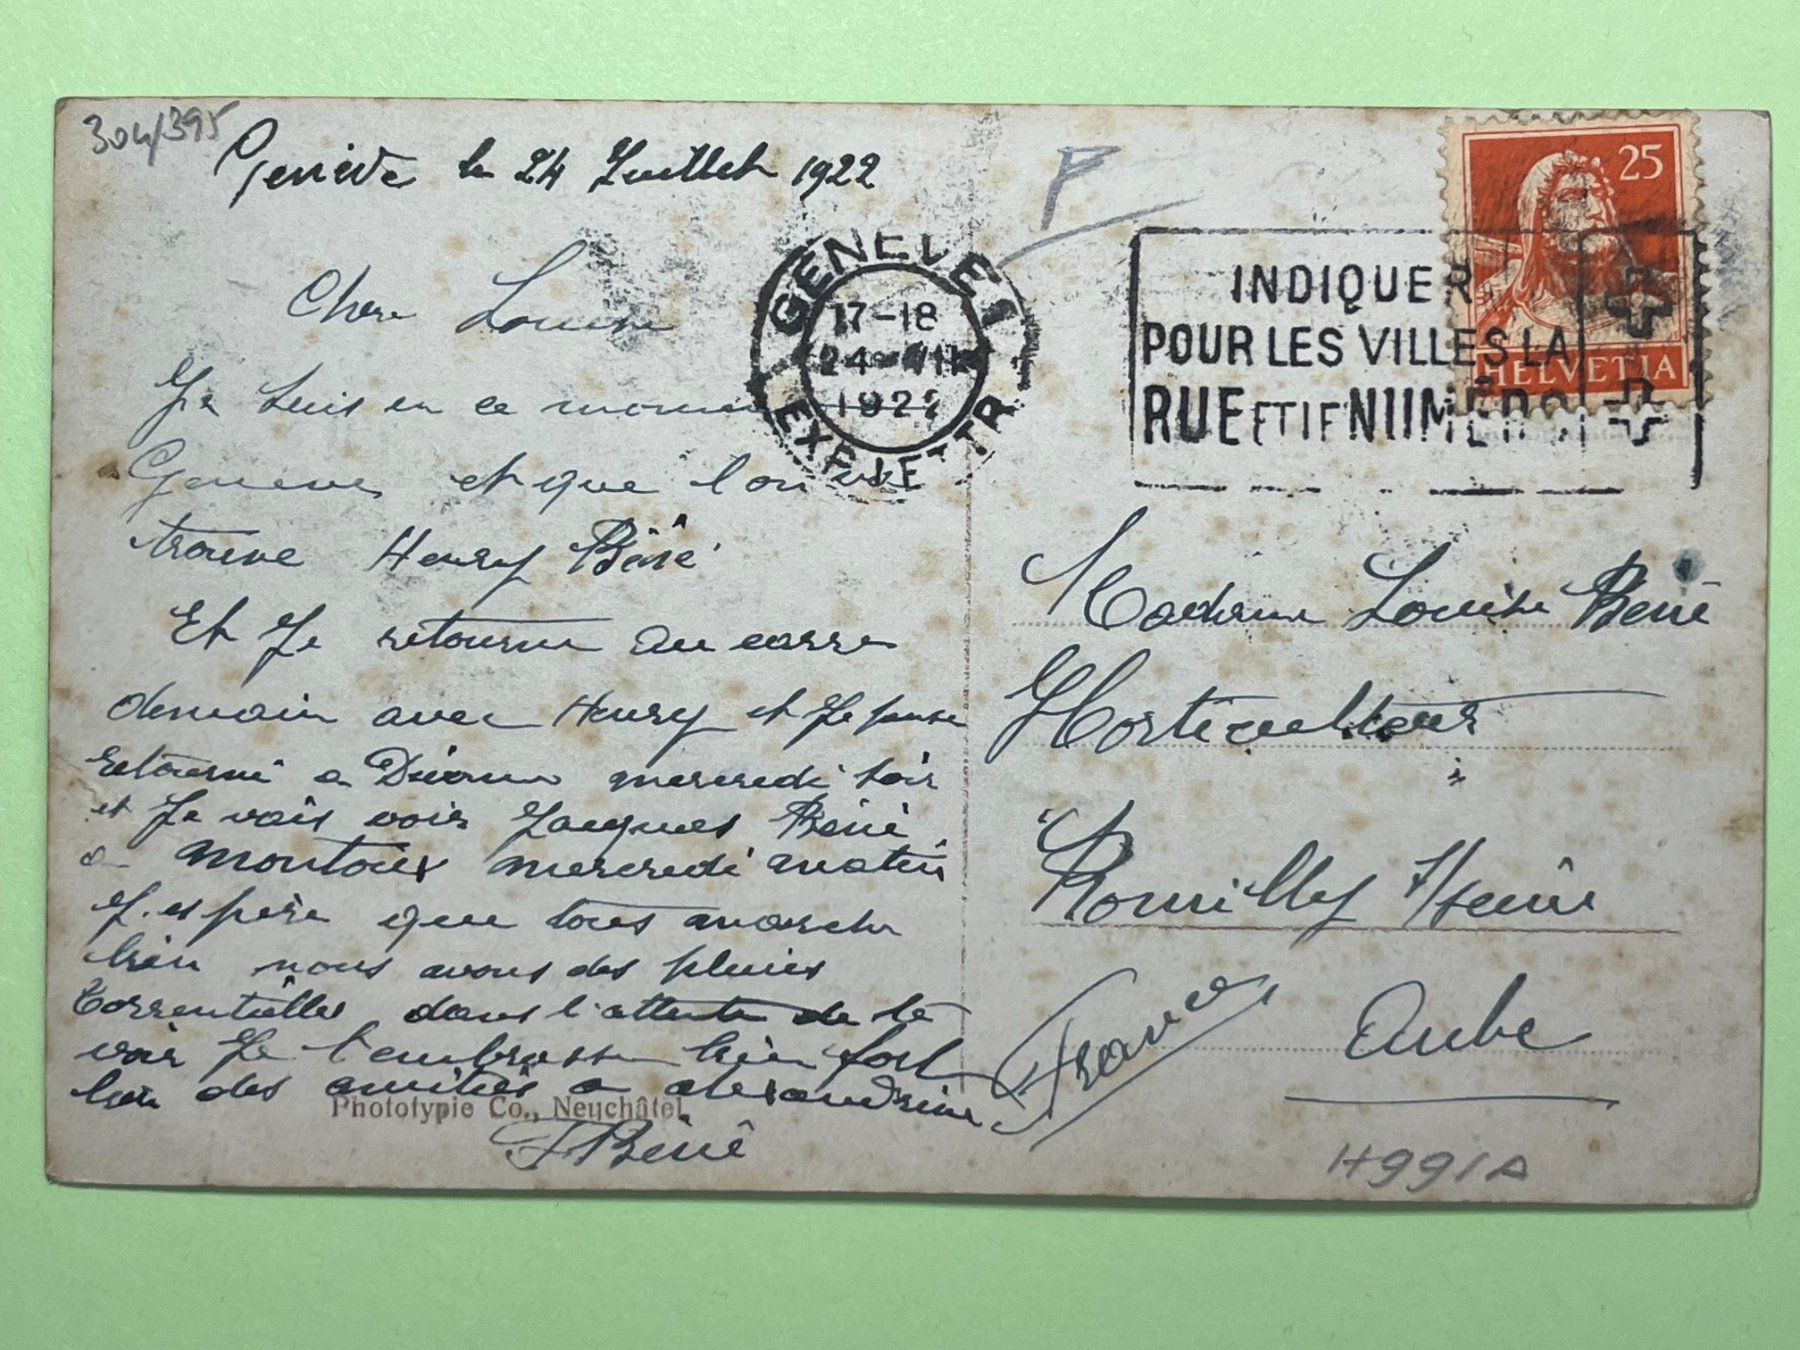 304/395
Genève le 24 Juillet 1922
Chere Louise
Je suis en ce moment
Geneve et que l'on
trouve Henry Béné
Et Je retourne au
demain avec Henry et Je pense
retourné a Divonne mercredi soir
et Je vais voir Jacques Béné
a mercredi matin
J. espère que tous marche
bien nous avons des pluies
torrentielles dans l'attente de te
voir Je t'embrasse bien fort
bien des amitiés a alexandrine
Béné
Phototypie Co., Neuchâtel
GENÈVE 1
17-18
24 VII
1922
EXP. LETTR.
INDIQUER
POUR LES VILLES LA
RUE ET LE NUMÉRO
25
HELVETIA
Madame Louise Béné
Horticulteur
Romilly s/Seine
Aube
France
H991A